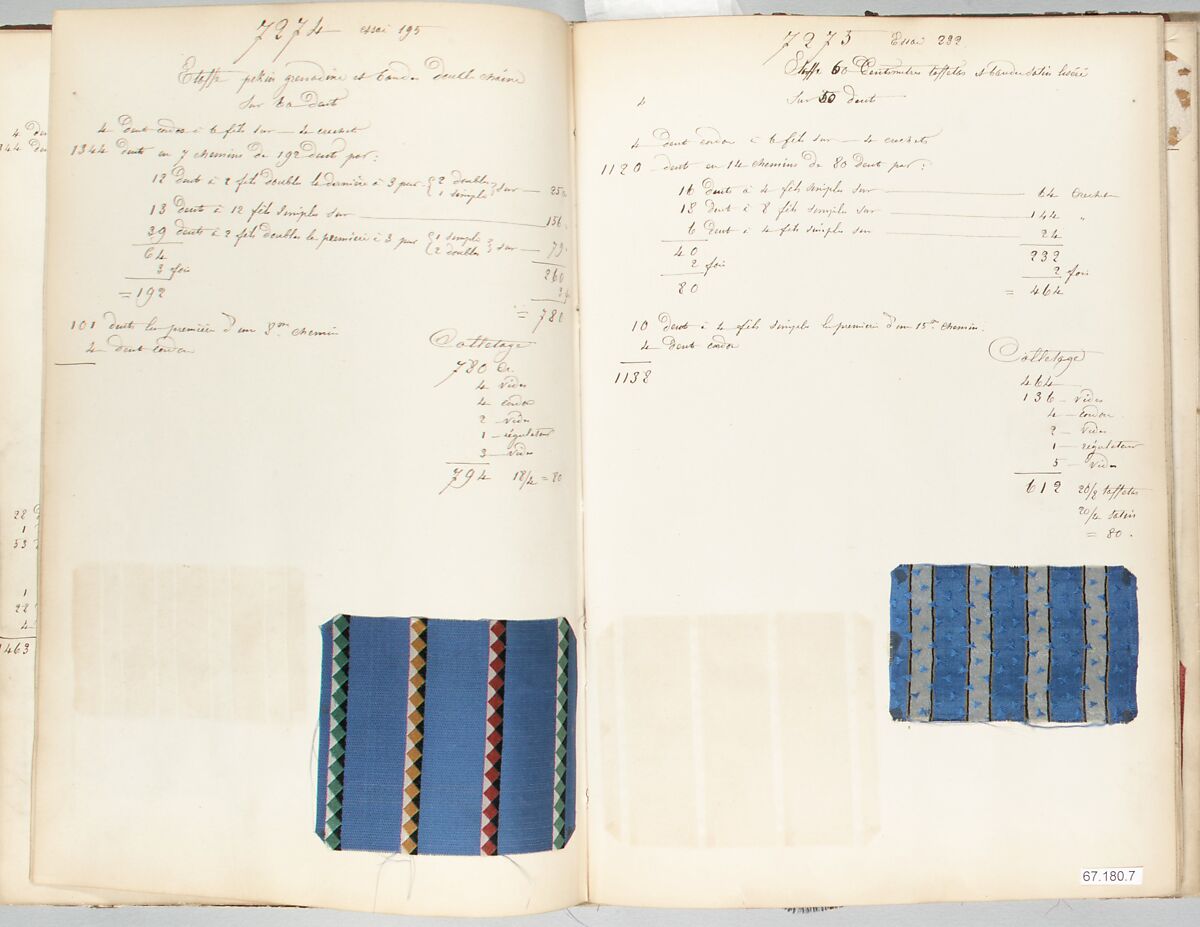 7274 essai 195
Etoffe pekin grenadine et bandes double chaine
sur 80 dents
4 dents cordon à 6 fils sur — 4 crochets
1344 dents en 7 chemins de 192 dents par :
12 dents à 2 fils doubles la dernière à 3 par {2 doubles 1 simple} sur — 25
13 dents à 12 fils simples sur — 156
39 dents à 2 fils doubles la première à 3 par {1 simple 2 doubles} sur — 79
64
260
3 fois
3
= 192
= 780
101 dents la première d'un 8me chemin
4 dents cordon
Colletage
780 Cr
4 vides
4 cordon
2 vides
1 — régulateur
3 — vides
794 18/4 = 80
7275 Essai 232
Etoffe 60 Centimetres taffetas et bandes satin liseré
4 sur 80 dents
4 dents cordon à 6 fils sur — 4 crochets
1120 dents en 14 chemins de 80 dents par :
16 dents à 4 fils simples sur — 64 crochets
18 dents à 8 fils simples sur — 144 "
6 dents à 4 fils simples sur — 24
40
232
2 fois
2 fois
80
= 464
10 dents à 4 fils simples la première d'un 15me chemin.
4 dents cordon
1138
Colletage
464
136 — vides
4 — cordon
2 — vides
1 — régulateur
5 — vides
612 20/2 taffetas
20/4 satin
= 80.
22
1
53
1
22
4
1463
67.180.7